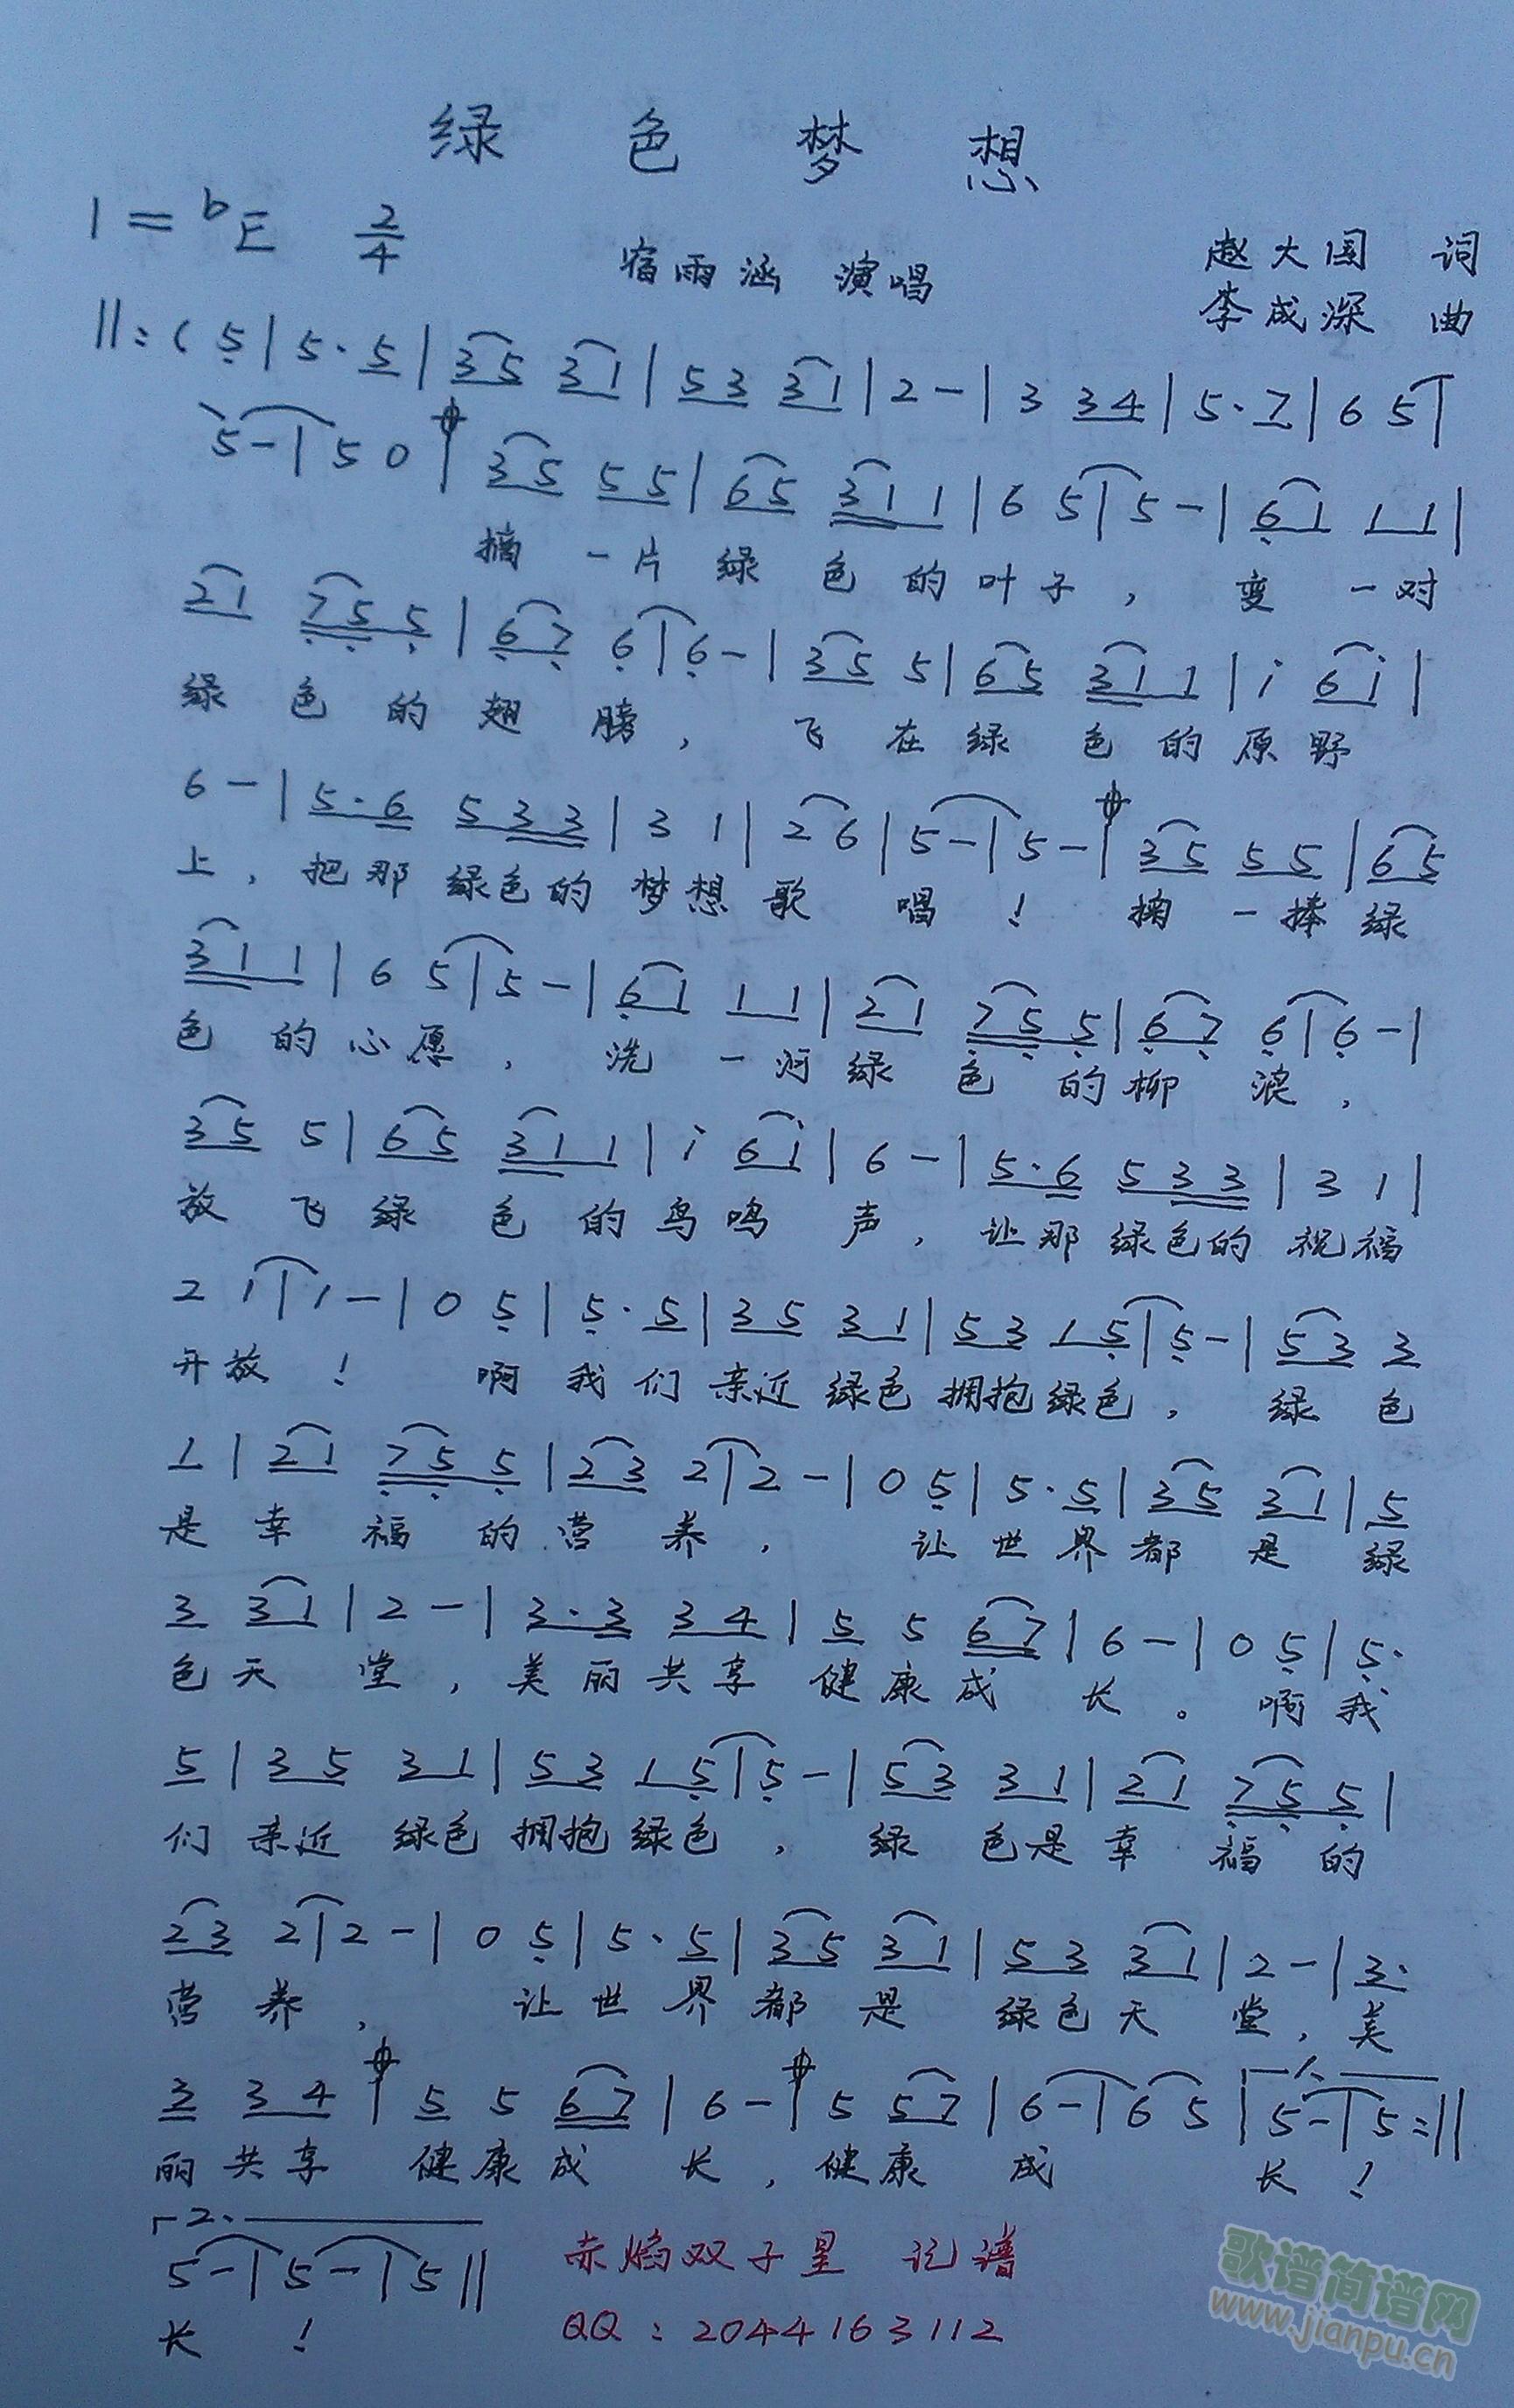 绿色梦想
1=bE 2/4 宿雨涵 演唱 赵大国 词
李成深 曲
||:( 5 | 5· 5 | 35 31 | 53 31 | 2 - | 3 34 | 5· 7 | 6 5 |
5 - | 5 0 | 35 55 | 65 311 | 6 5 | 5 - | 61 11 |
摘一片绿色的叶子，变一对
21 755 | 67 6 | 6 - | 35 5 | 65 311 | i 6i |
绿色的翅膀，飞在绿色的原野
6 - | 5·6 533 | 3 1 | 2 6 | 5 - | 5 - | 35 55 | 65
上，把那绿色的梦想歌唱！掬一捧绿
311 | 6 5 | 5 - | 61 11 | 21 755 | 67 6 | 6 - |
色的心愿，洗一河绿色的柳浪，
35 5 | 65 311 | i 6i | 6 - | 5·6 533 | 3 1 |
放飞绿色的鸟鸣声，让那绿色的祝福
2 1 | 1 - | 0 5 | 5· 5 | 35 31 | 53 15 | 5 - | 53 3
开放！啊我们亲近绿色拥抱绿色，绿色
1 | 21 755 | 23 2 | 2 - | 0 5 | 5· 5 | 35 31 | 5
是幸福的营养，让世界都是绿
3 31 | 2 - | 3·3 34 | 5 5 67 | 6 - | 0 5 | 5·
色天堂，美丽共享健康成长。啊我
5 | 35 31 | 53 15 | 5 - | 53 31 | 21 755 |
们亲近绿色拥抱绿色，绿色是幸福的
23 2 | 2 - | 0 5 | 5· 5 | 35 31 | 53 31 | 2 - | 3·
营养，让世界都是绿色天堂，美
3 34 | 5 5 67 | 6 - | 5 57 | 6 - | 6 5 | 1. 5 - | 5 :||
丽共享健康成长，健康成长！
2.
5 - | 5 - | 5 || 赤焰双子星 记谱
长！ QQ：2044163112
歌谱简谱网
www.jianpu.cn